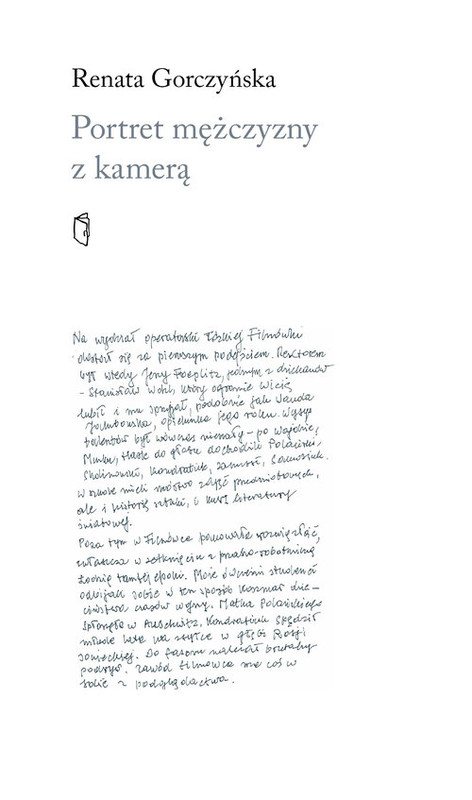 Renata Gorczyńska
Portret mężczyzny
z kamerą
Na wydział operatorski łódzkiej Filmówki
dostał się za pierwszym podejściem. Rektorem
był wtedy Jerzy Toeplitz, jednym z dziekanów
– Stanisław Wohl, który ogromnie Wicia
lubił i mu sprzyjał, podobnie jak Wanda
Jakubowska, opiekunka jego roku. Wysyp
talentów był wówczas niemały – po Wajdzie,
Munku, Hasie do głosu dochodzili Polański,
Skolimowski, Kondratiuk, Zanussi,
W szkole mieli mnóstwo zajęć przedmiotowych,
ale i historię sztuki, i kurs literatury
światowej.
Poza tym w Filmówce panowała rozwiązłość,
zwłaszcza w zetknięciu z prasko-robotniczą
Łodzią tamtej epoki. Może dwcześni studenci
odbijali sobie w ten sposób koszmar dzie-
ciństwa czasów wojny. Matka Polańskiego
zginęła w Auschwitz. Kondratiuk spędził
młode lata na zsyłce w głębi Rosji
sowieckiej. Do fasonu należał brutalny
podryw. Zawód filmowca ma coś w
sobie z podglądactwa.